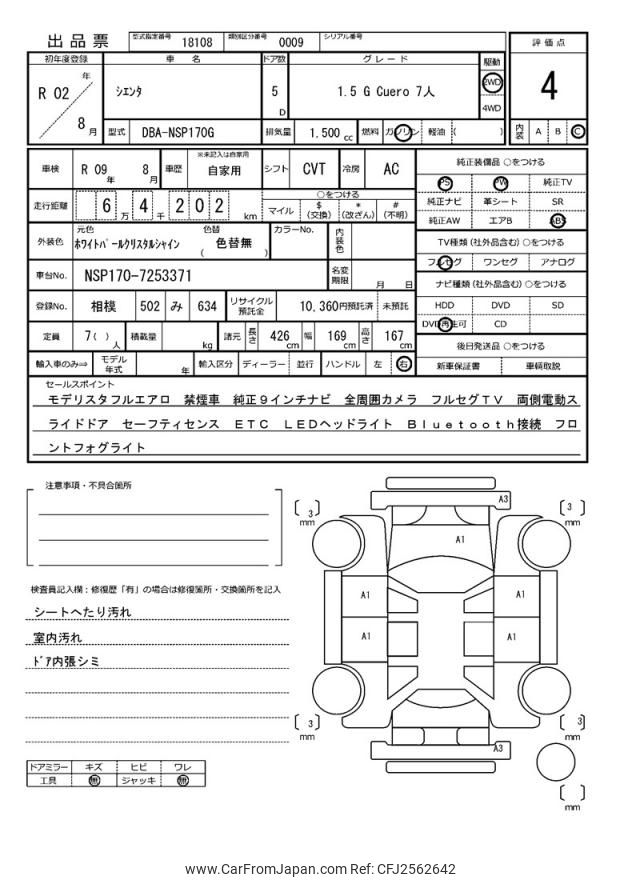 出品票 型式指定番号 18108 類別区分番号 0009 シリアル番号
評価点
4
内装 A B C
初年度登録 車名 ドア数 グレード 駆動
R 02 年 8 月
シエンタ 5 D 1.5 G Cuero 7人 2WD 4WD
型式 DBA-NSP170G 排気量 1.500 cc 燃料 ガソリン 軽油 ( )
車検 R 09 年 8 月 車歴 ※未記入は自家用 自家用 シフト CVT 冷房 AC
走行距離 6 万 4 千 2 0 2 km ○をつける
マイル $ (交換) * (改ざん) # (不明)
外装色 元色 ホワイトパールクリスタルシャイン 色替 ( 色替無 ) カラーNo. 内装色
車台No. NSP170-7253371 名変期限 月 日
登録No. 相模 502 み 634 リサイクル預託金 10,360円預託済 未預託
定員 7( ) 人 積載量 kg 諸元 長さ 426 cm 幅 169 cm 高さ 167 cm
輸入車のみ⇒ モデル年式 年 輸入区分 ディーラー 並行 ハンドル 左 右
純正装備品 ○をつける
PS PW 純正TV
純正ナビ 革シート SR
純正AW エアB ABS
TV種類 (社外品含む) ○をつける
フルセグ ワンセグ アナログ
ナビ種類 (社外品含む) ○をつける
HDD DVD SD
DVD再生可 CD
後日発送品 ○をつける
新車保証書 車輌取説
セールスポイント
モデリスタフルエアロ 禁煙車 純正9インチナビ 全周囲カメラ フルセグTV 両側電動ス
ライドドア セーフティセンス ETC LEDヘッドライト Bluetooth接続 フロ
ントフォグライト
注意事項・不具合箇所
検査員記入欄：修復歴「有」の場合は修復箇所・交換箇所を記入
シートへたり汚れ
室内汚れ
ドア内張シミ
ドアミラー キズ ヒビ ワレ
工具 無 ジャッキ 無
A3
3 mm
3 mm
A1
A1 A1
A1 A1
3 mm
3 mm
A3
mm
www.CarFromJapan.com Ref: CFJ2562642